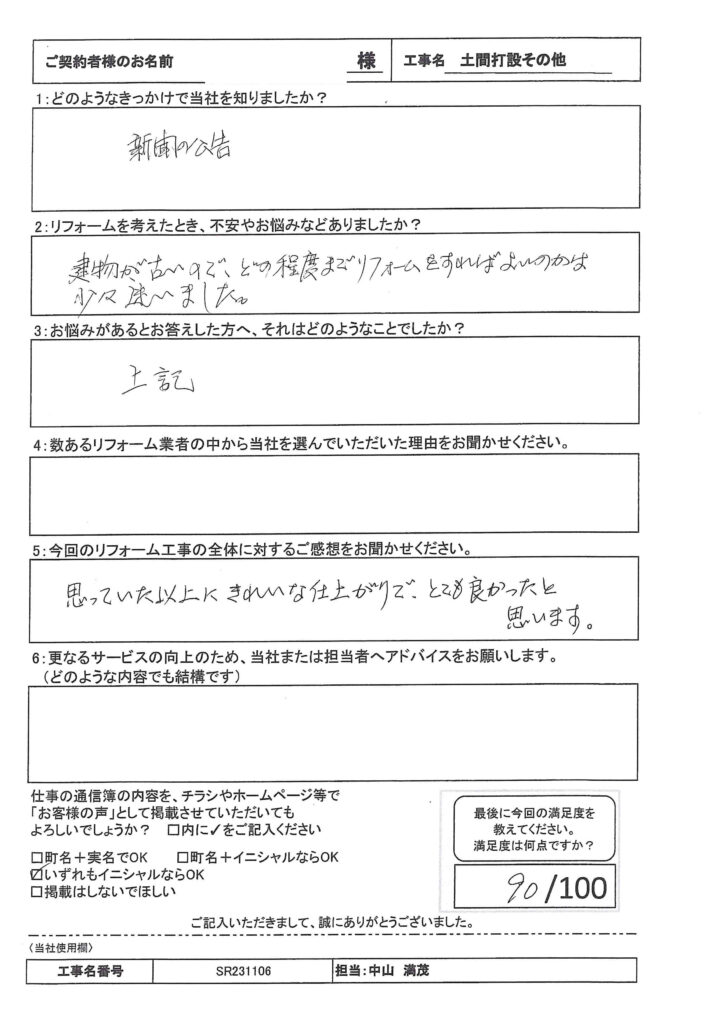 ご契約者様のお名前 様 工事名 土間打設その他
1:どのようなきっかけで当社を知りましたか?
新聞の公告
2:リフォームを考えたとき、不安やお悩みなどありましたか?
建物が古いので、どの程度までリフォームをすればよいのかは
少々迷いました。
3:お悩みがあるとお答えした方へ、それはどのようなことでしたか?
上記
4:数あるリフォーム業者の中から当社を選んでいただいた理由をお聞かせください。
5:今回のリフォーム工事の全体に対するご感想をお聞かせください。
思っていた以上にきれいな仕上がりで、とても良かったと
思います。
6:更なるサービスの向上のため、当社または担当者へアドバイスをお願いします。
(どのような内容でも結構です)
仕事の通信簿の内容を、チラシやホームページ等で
「お客様の声」として掲載させていただいても
よろしいでしょうか? □内に✓をご記入ください
□町名+実名でOK □町名+イニシャルならOK
☑いずれもイニシャルならOK
□掲載はしないでほしい
最後に今回の満足度を
教えてください。
満足度は何点ですか?
90/100
ご記入いただきまして、誠にありがとうございました。
〈当社使用欄〉
工事名番号 SR231106 担当:中山 満茂